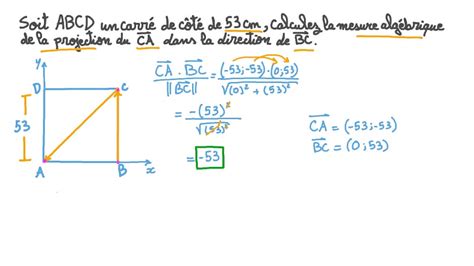 Soit ABCD un carré de côté de 53 cm, calculez la mesure algébrique
de la projection du CA dans la direction de BC.
y
D
C
53
A
B
x
CA . BC / ||BC|| = (-53;-53)·(0;53) / √(0)² + (53)²
= -(53)² / √(53)²
= -53
CA = (-53;-53)
BC = (0;53)